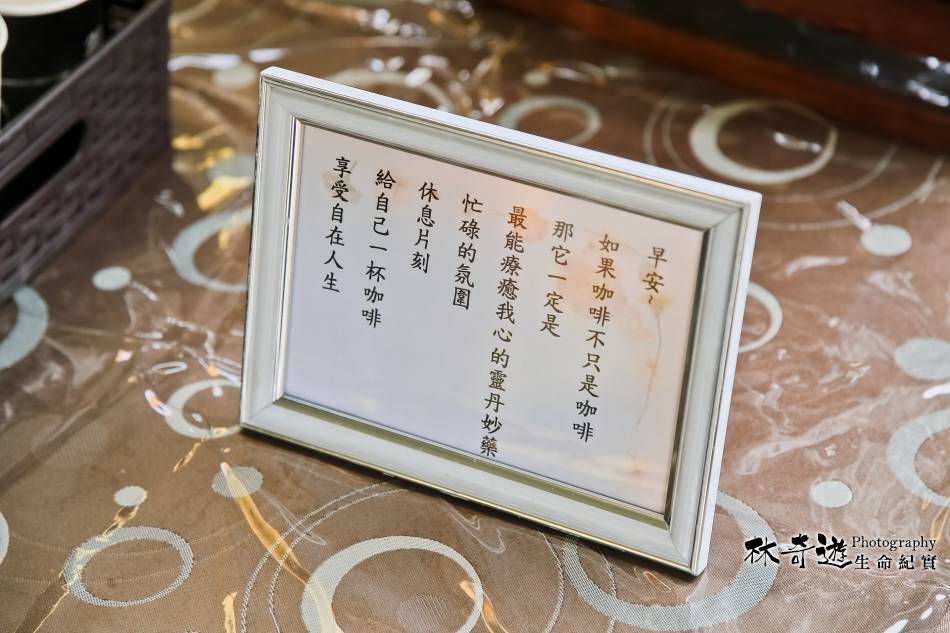 早安~
如果咖啡不只是咖啡
那它一定是
最能療癒我心的靈丹妙藥
忙碌的氛圍
休息片刻
給自己一杯咖啡
享受自在人生
林奇遊 Photography
生命紀實